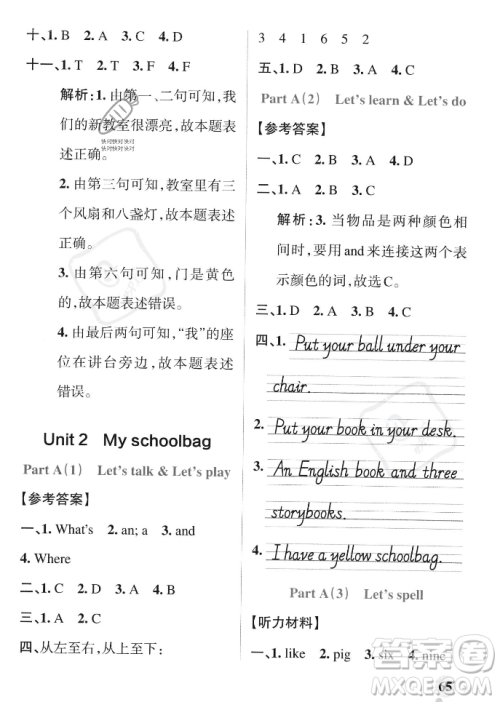 十、1. B　2. A　3. C　4. D
十一、1. T　2. T　3. F　4. F
解析:1. 由第一、二句可知，我
们的新教室很漂亮，故本题表
述正确。
2. 由第三句可知，教室里有
三个风扇和八盏灯，故本题表
述正确。
3. 由第六句可知，门是黄色
的，故本题表述错误。
4. 由最后两句可知，“我”的座
位在讲台旁边，故本题表述
错误。
Unit 2　My schoolbag
Part A(1)　Let's talk & Let's play
【参考答案】
一、1. What's　2. an; a　3. and
4. Where
二、1. C　2. D　3. A　4. B
三、1. A　2. C　3. A
四、从左至右，从上至下:
3　4　1　6　5　2
五、1. C　2. D　3. B　4. A
Part A(2)　Let's learn & Let's do
【参考答案】
一、1. C　2. B　3. A　4. C
二、1. A　2. B　3. C
解析:3. 当物品是两种颜色相
间时，要用and来连接这两个表
示颜色的词，故选C。
三、1. D　2. A　3. B　4. C
四、1. Put your ball under your
chair.
2. Put your book in your desk.
3. An English book and three
storybooks.
4. I have a yellow schoolbag.
Part A(3)　Let's spell
【听力材料】
一、1. like　2. pig　3. six　4. nine
65